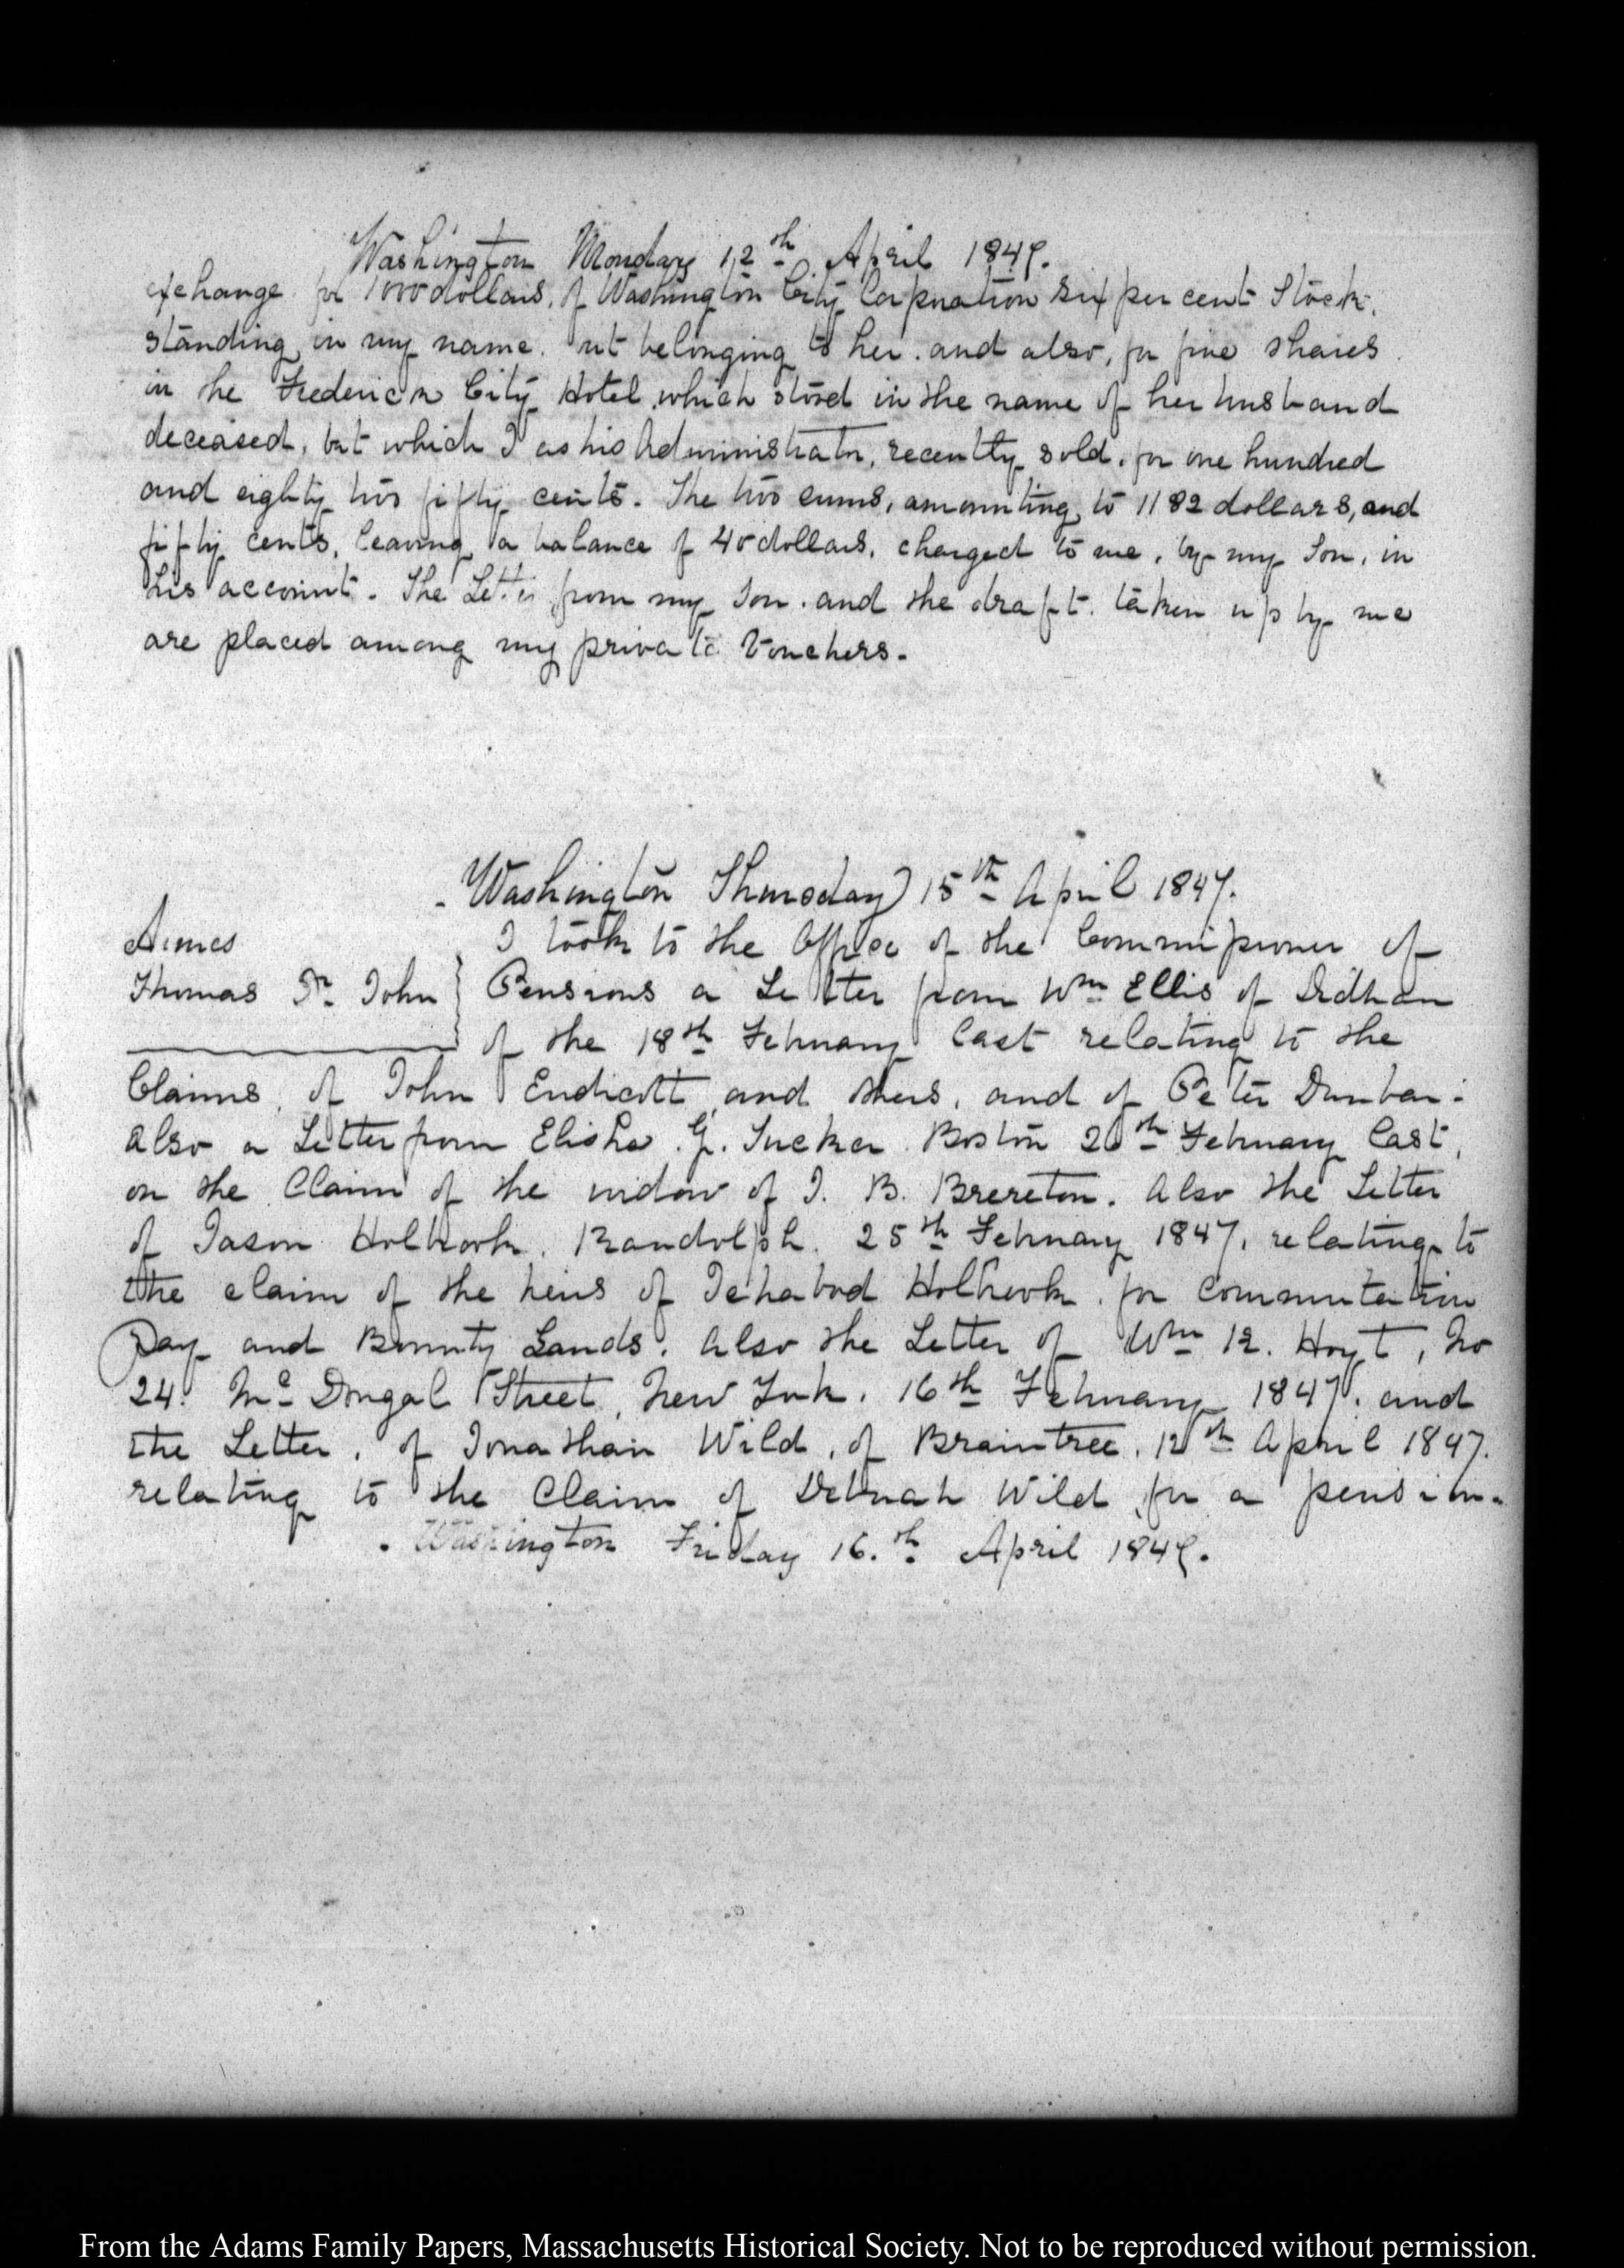 Washington Monday 12th April 1847.
exchange for 1000 dollars, of Washington City Corporation six per cent Stock.
standing in my name. but belonging to her. and also, for five shares
in the Frederick City Hotel which stood in the name of her husband
deceased, but which I as his Administrator, recently sold, for one hundred
and eighty two fifty cents. The two sums, amounting to 1182 dollars, and
fifty cents, leaving a balance of 40 dollars, charged to me, by my Son, in
his account. The Letter from my Son. and the draft. taken up by me
are placed among my private Vouchers.
Washington Thursday 15th April 1847.
Aimes
Thomas Jr. John
I took to the Office of the Commissioner of
Pensions a Letter from Wm Ellis of Dedham
of the 18th February last relating to the
Claims, of John Endicott and others, and of Peter Dunbar:
Also a Letter from Elisha G. Tucker Boston 26th February last,
on the Claim of the widow of J. B. Brereton. Also the Letter
of Jason Holbrook. Randolph. 25th February 1847, relating to
the claim of the heirs of Ichabod Holbrook. for Commutation
Pay and Bounty Lands. Also the Letter of Wm R. Hoyt, No
24. Mc Dougal Street, New York. 16th February 1847. and
the Letter, of Jonathan Wild, of Braintree. 12th April 1847.
relating to the Claim of Deborah Wild for a pension.
Washington Friday 16.th April 1847.
From the Adams Family Papers, Massachusetts Historical Society. Not to be reproduced without permission.